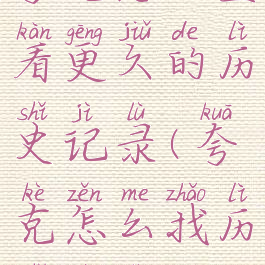 kàn gēng jiǔ de lì
看更久的历
shǐ jì lù kuā
史记录(夸
kè zěn me zhǎo lì
克怎么找历